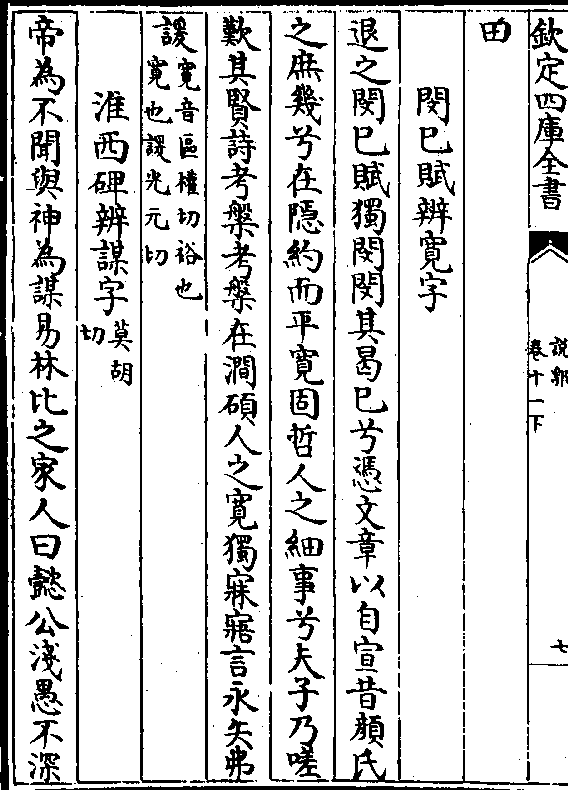 欽定四庫全書
說郛
卷十一下
七
田
閔已賦辨寛字
退之閔已賦獨閔閔其曷已兮憑文章以自宣昔顔氏
之庶幾兮在隱約而平寛固哲人之細事兮夫子乃嗟
歎其賢詩考槃考槃在澗碩人之寛獨寐寤言永矢弗
諼
寛音區權切裕也
寛也諼光元切
淮西碑辨謀字
莫胡
切
帝為不聞與神為謀易林比之家人曰懿公淺愚不深